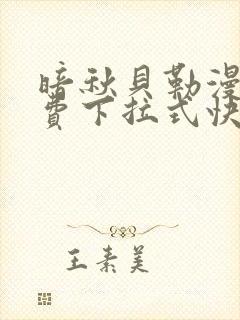 暗秋貝勒漫
費下拉式快
王素美